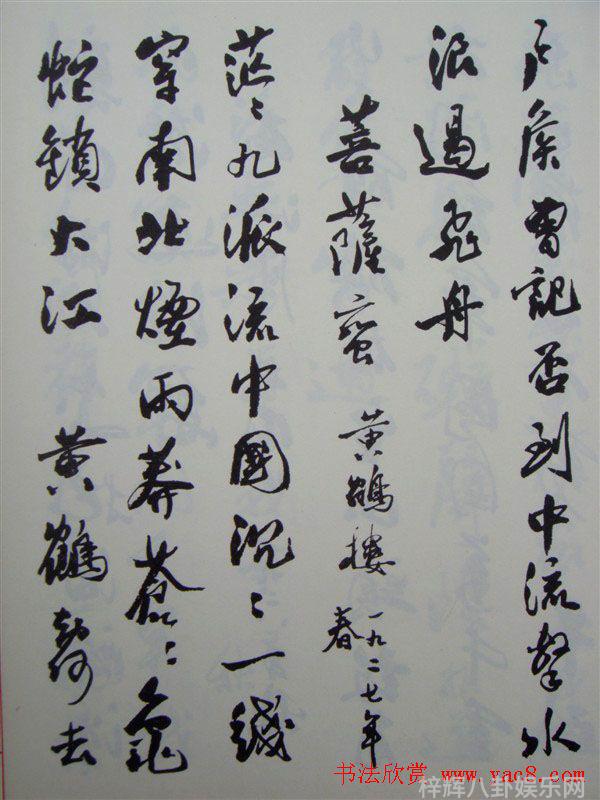 户侯曾記否到中流擊水
浪遏飛舟
菩薩蠻 黄鶴樓 一九二七年
春
茫〻九派流中國沉〻一綫
穿南北煙雨莽蒼〻龜
蛇鎖大江 黄鶴知何去
书法欣赏 www.yac8.com
梓辉八卦娱乐网